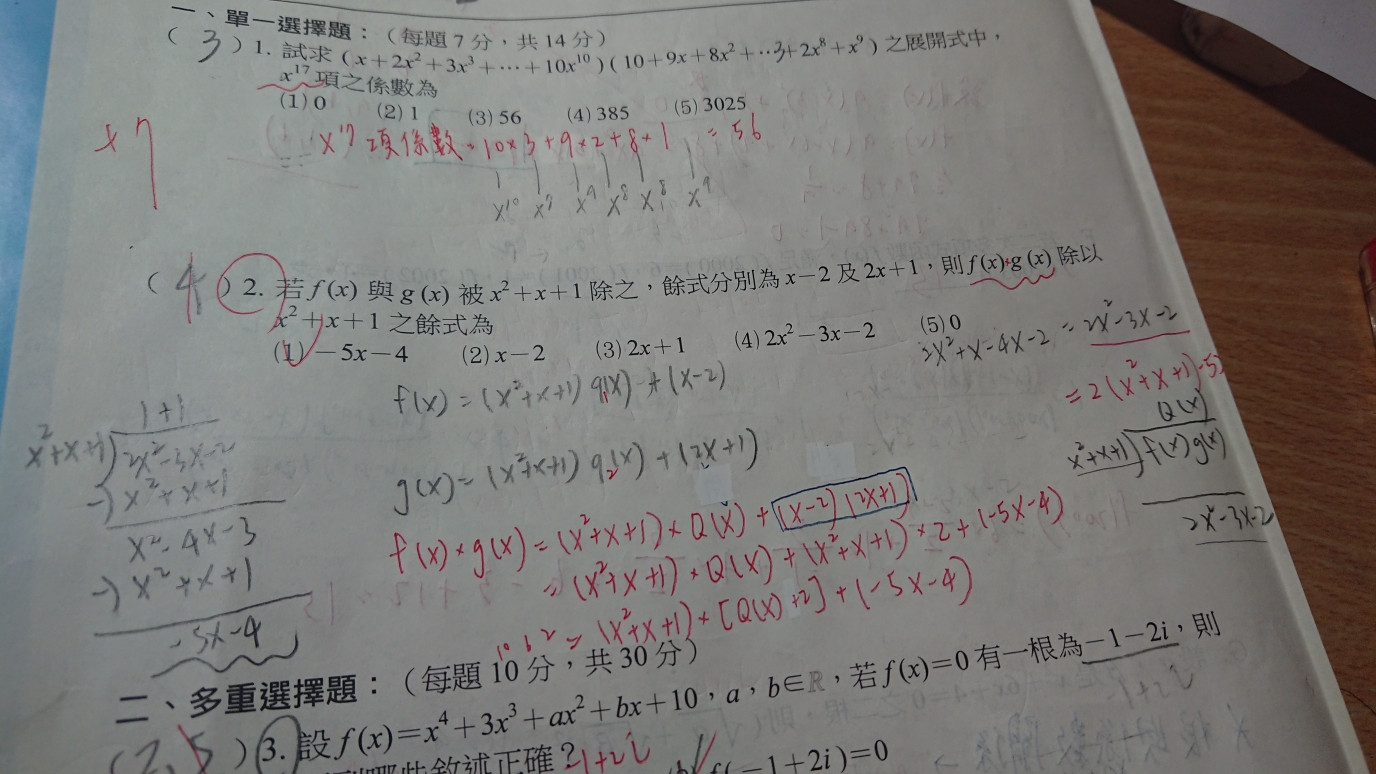 一、單一選擇題：（每題 7 分，共 14 分）
( 3 ) 1. 試求 (x+2x²+3x³+⋯+10x¹⁰)(10+9x+8x²+⋯+2x⁸+x⁹) 之展開式中，
x¹⁷ 項之係數為
(1) 0 (2) 1 (3) 56 (4) 385 (5) 3025
x¹⁷ 項係數 = 10×3+9×2+8×1 = 56
x¹⁰ x⁷ x⁹ x⁸ x⁸ x⁹
( 4 ) 2. 若 f(x) 與 g(x) 被 x²+x+1 除之，餘式分別為 x−2 及 2x+1，則 f(x)·g(x) 除以
x²+x+1 之餘式為
(1) −5x−4 (2) x−2 (3) 2x+1 (4) 2x²−3x−2 (5) 0
2x²+x-4x-2 = 2x²-3x-2
= 2(x²+x+1)-5x
f(x) = (x²+x+1) q₁(x) + (x-2)
g(x) = (x²+x+1) q₂(x) + (2x+1)
f(x)×g(x) = (x²+x+1)×Q(x) + (x-2)(2x+1)
= (x²+x+1)×Q(x) + (x²+x+1)×2 + (-5x-4)
= (x²+x+1)×[Q(x)+2] + (-5x-4)
1+1
x²+x+1 2x²-3x-2
-) x²+x+1
x²-4x-3
-) x²+x+1
-5x-4
Q(x)
x²+x+1 f(x)g(x)
2x²-3x-2
二、多重選擇題：（每題 10 分，共 30 分）
( 2,5 ) 3. 設 f(x)=x⁴+3x³+ax²+bx+10，a，b∈ℝ，若 f(x)=0 有一根為 −1−2i，則
敘述正確？ -1+2i f(−1+2i)=0